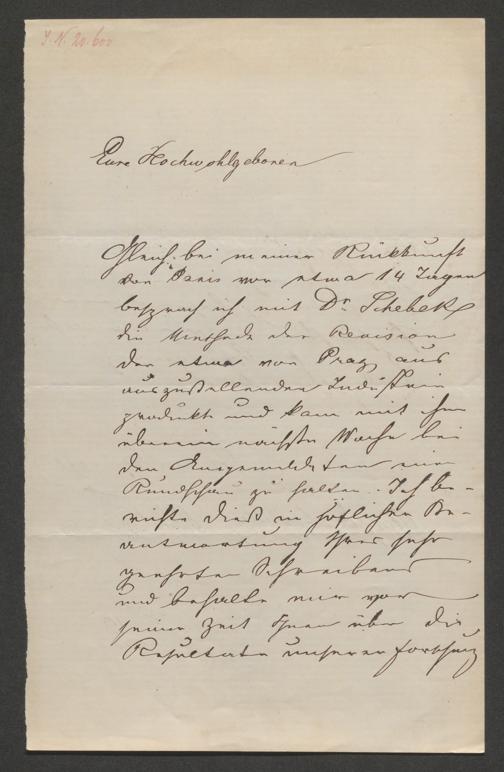 I. N. 20.600
Eure Hochwohlgeboren
Gleich bei meiner Rückkunft
von Paris vor etwa 14 Tagen
besprach ich mit Dr Schebek
die Methode der Revision
der etwa von Prag aus
auszustellenden Industrie
produkte und kam mit ihm
überein nächste Woche bei
den Angemeldeten eine
Rundschau zu halten. Ich be-
richte dieß in höflicher Be-
antwortung Ihres sehr
geehrten Schreibens
und behalte mir vor
seiner Zeit Ihnen über die
Resultate unserer Forschung